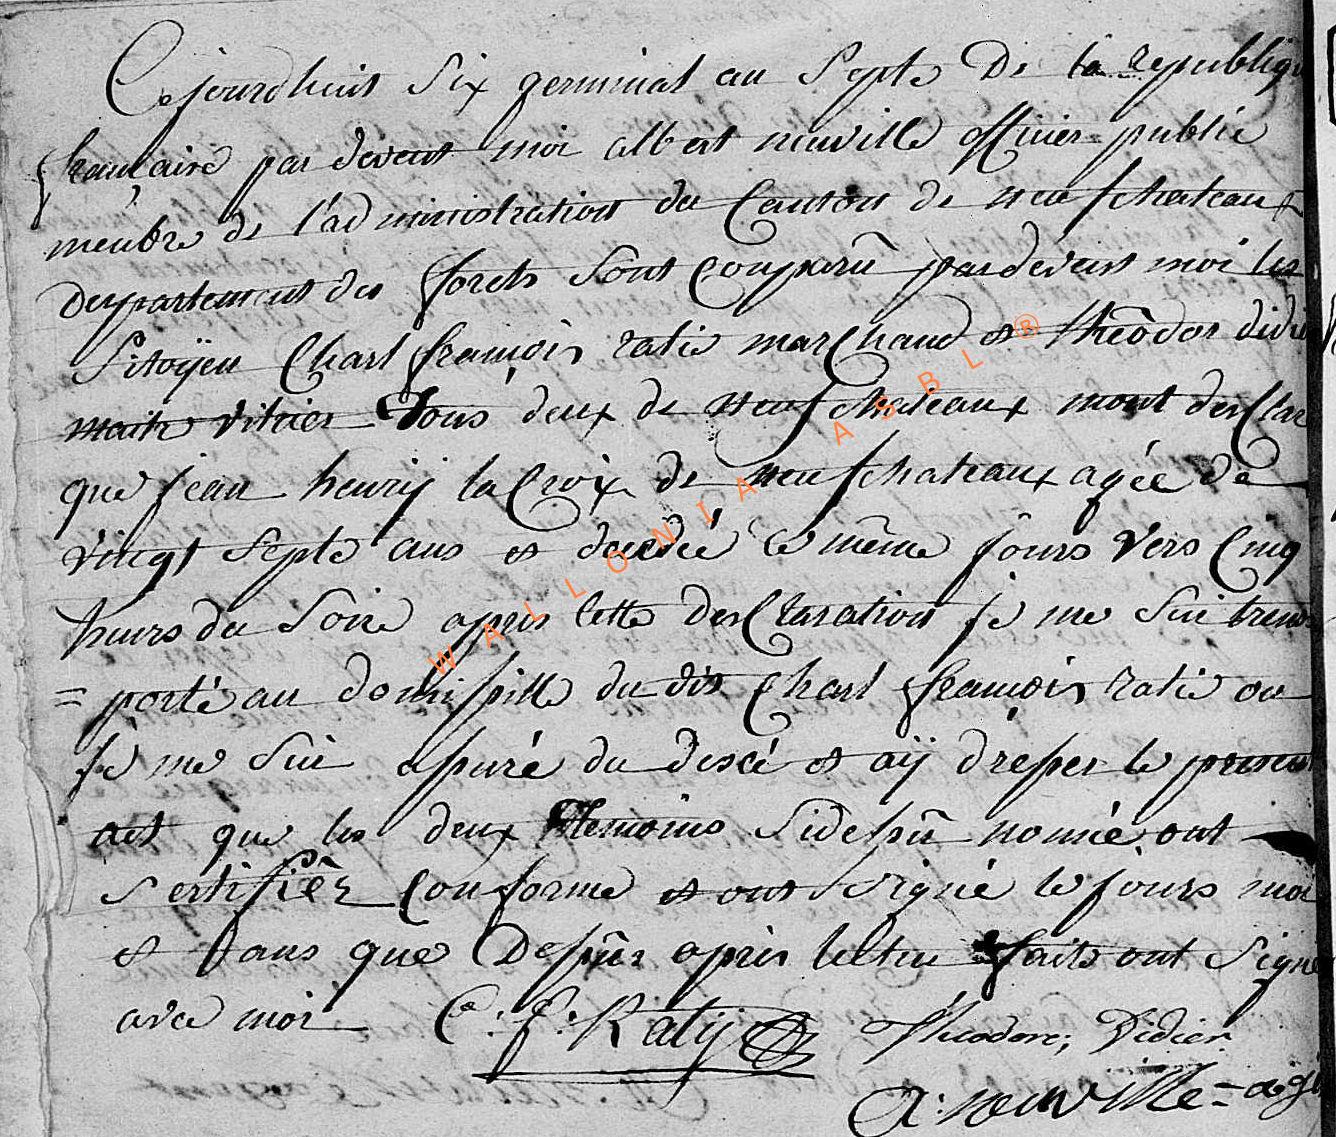 Cejourdhuit six germinal au septe De la republique
francaise par devent moi albert neuville officier public
menbre de l'administration du Canton de neufchateau
departement des forets sont Comparû pardevent moi les
sitoÿen Charl françois ratie marchand et theôdor didie
maitre vitrier Tous deux de neufchateaux mont desClar
que jean henrÿ laCroix de neufchateaux agée de
vingt septe ans et decedé le même jours vers Cinq
heurs du soire apres cette desClaration je me sui trans
= porté au domispille du dit Charl françois ratie ou
je me sui apuré du descé et aÿ dreper le present
act que les deux temoins sidepû nomée ont
sertifiêr Conforme et ont signé le jours moi
et dans que Depûs après lecteu faite ont signé
avec moi C: f: Ratij Theodore Didier
A: neuville = agt
WALLONIA ASBL ®